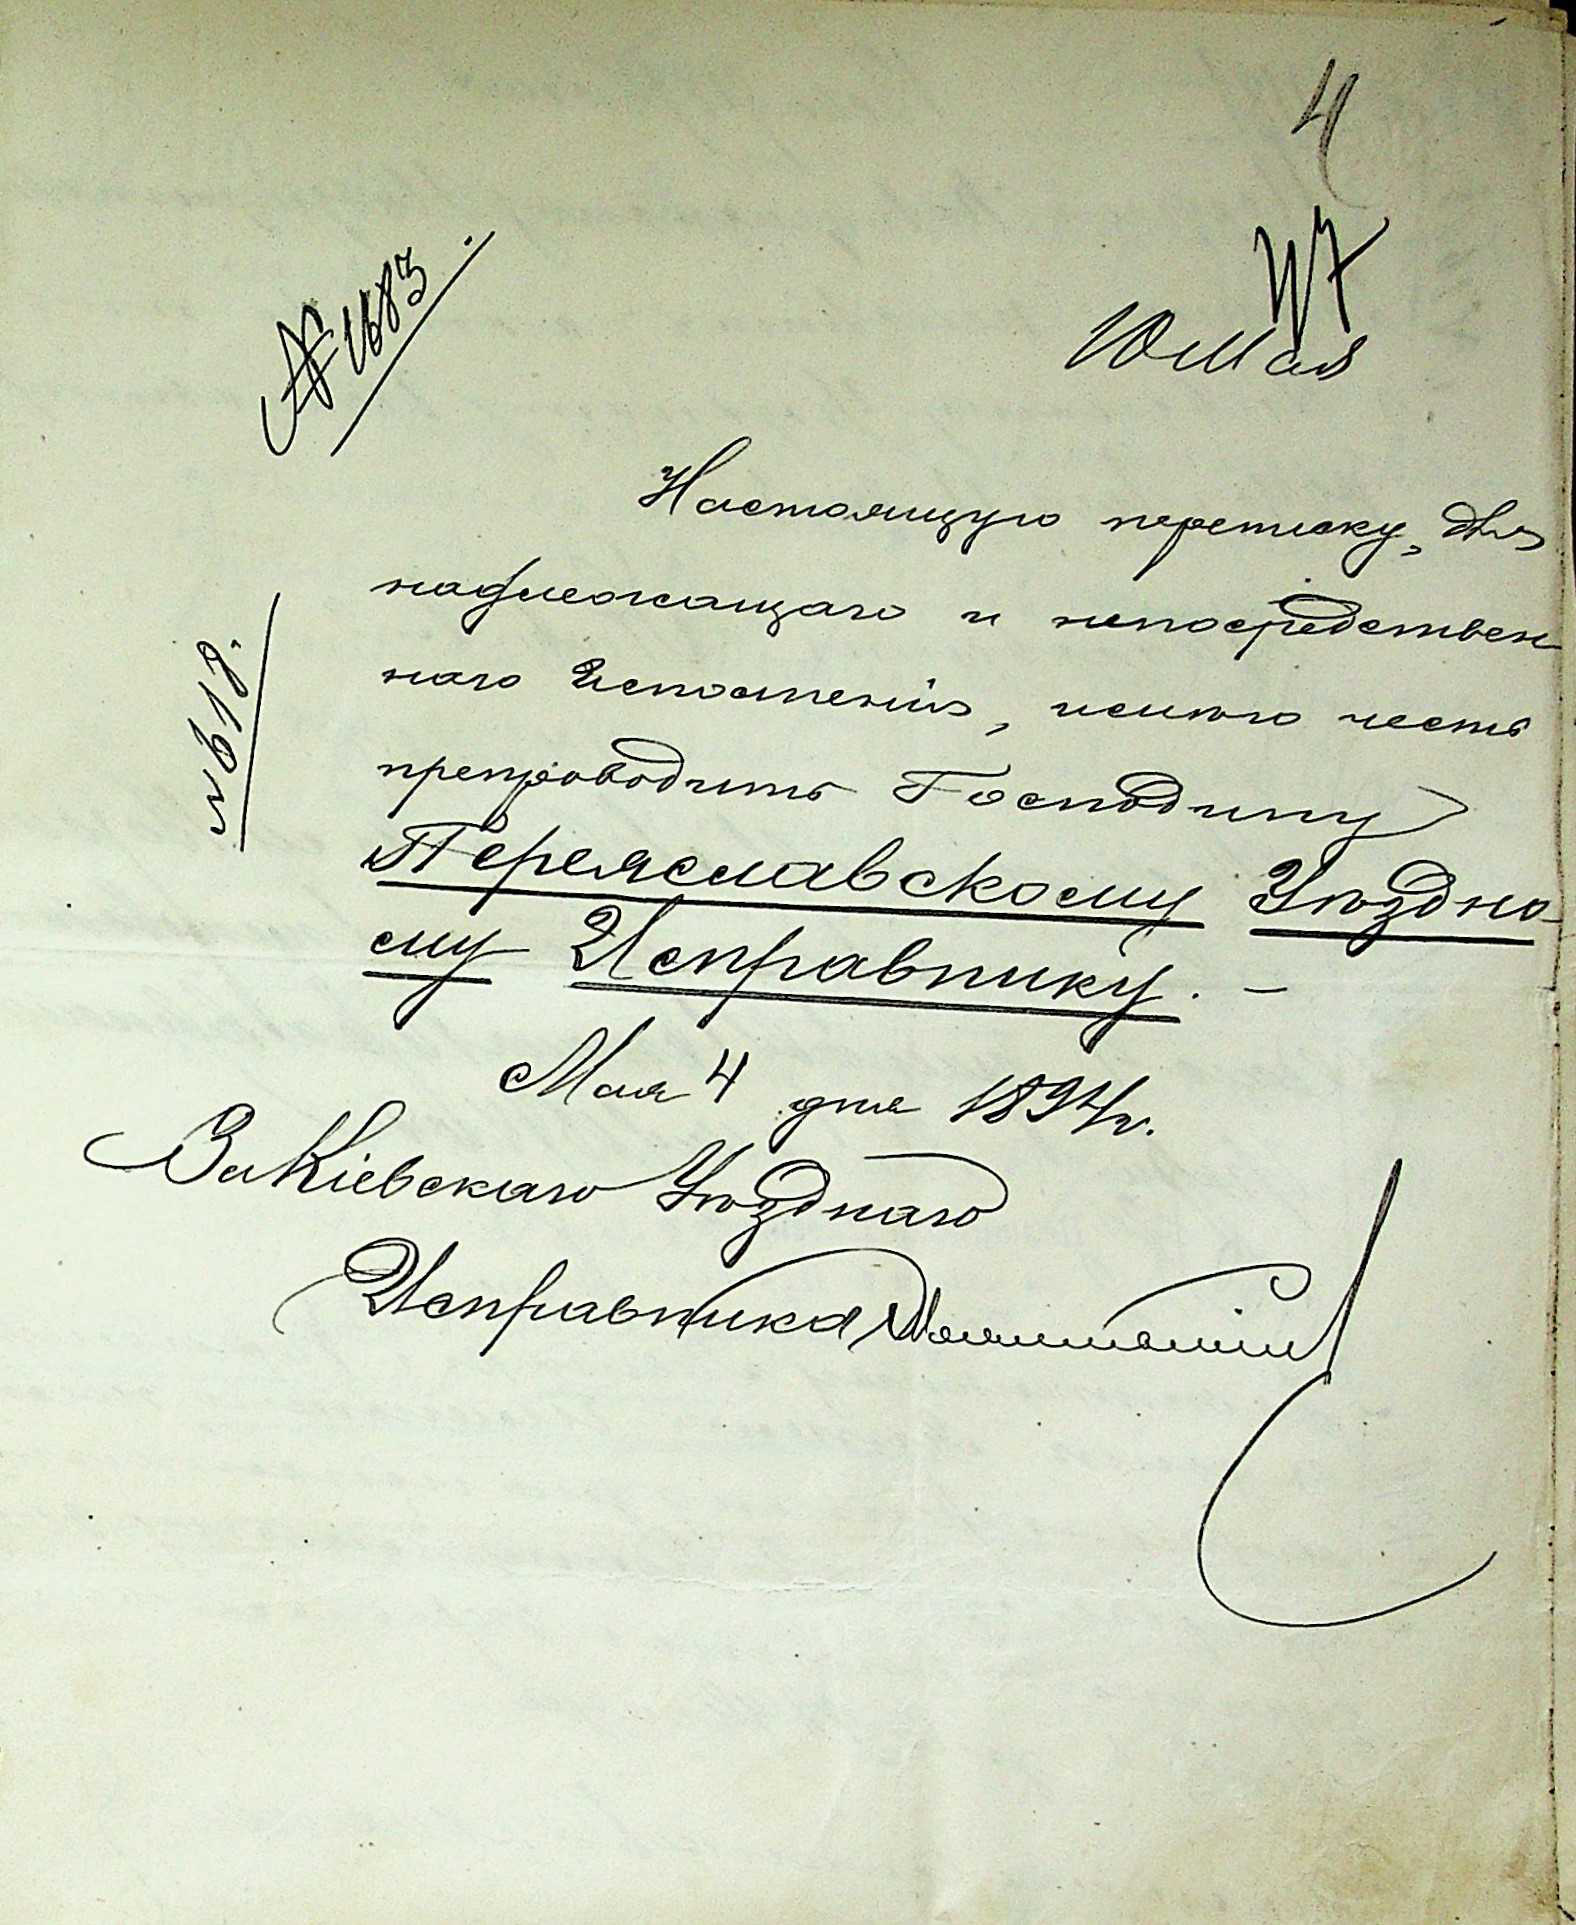 4
47
10 Мая
№ 1683.
Настоящую переписку, для
надлежащаго и непосредствен
наго исполненія, имѣю честь
№ 618.
препроводить Господину
Переяславскому Уѣздно-
му Исправнику. —
Мая 4 дня 1894 г.
За Кіевскаго Уѣзднаго
Исправника